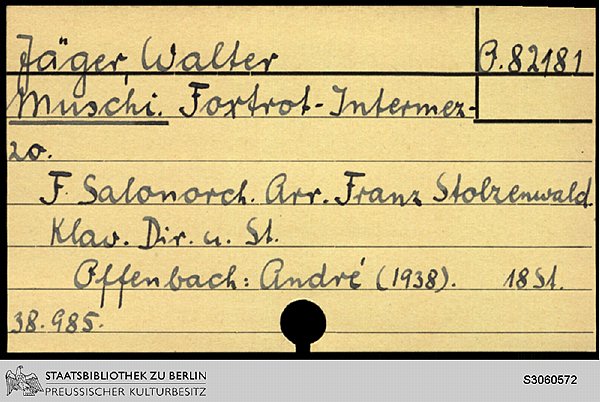 Jäger, Walter O.82181
Muschi. Foxtrot-Intermez-
zo.
F. Salonorch. Arr. Franz Stolzenwald.
Klav. Dir. u. St.
Offenbach: André (1938). 18 St.
38.985.
STAATSBIBLIOTHEK ZU BERLIN
PREUSSISCHER KULTURBESITZ
S3060572